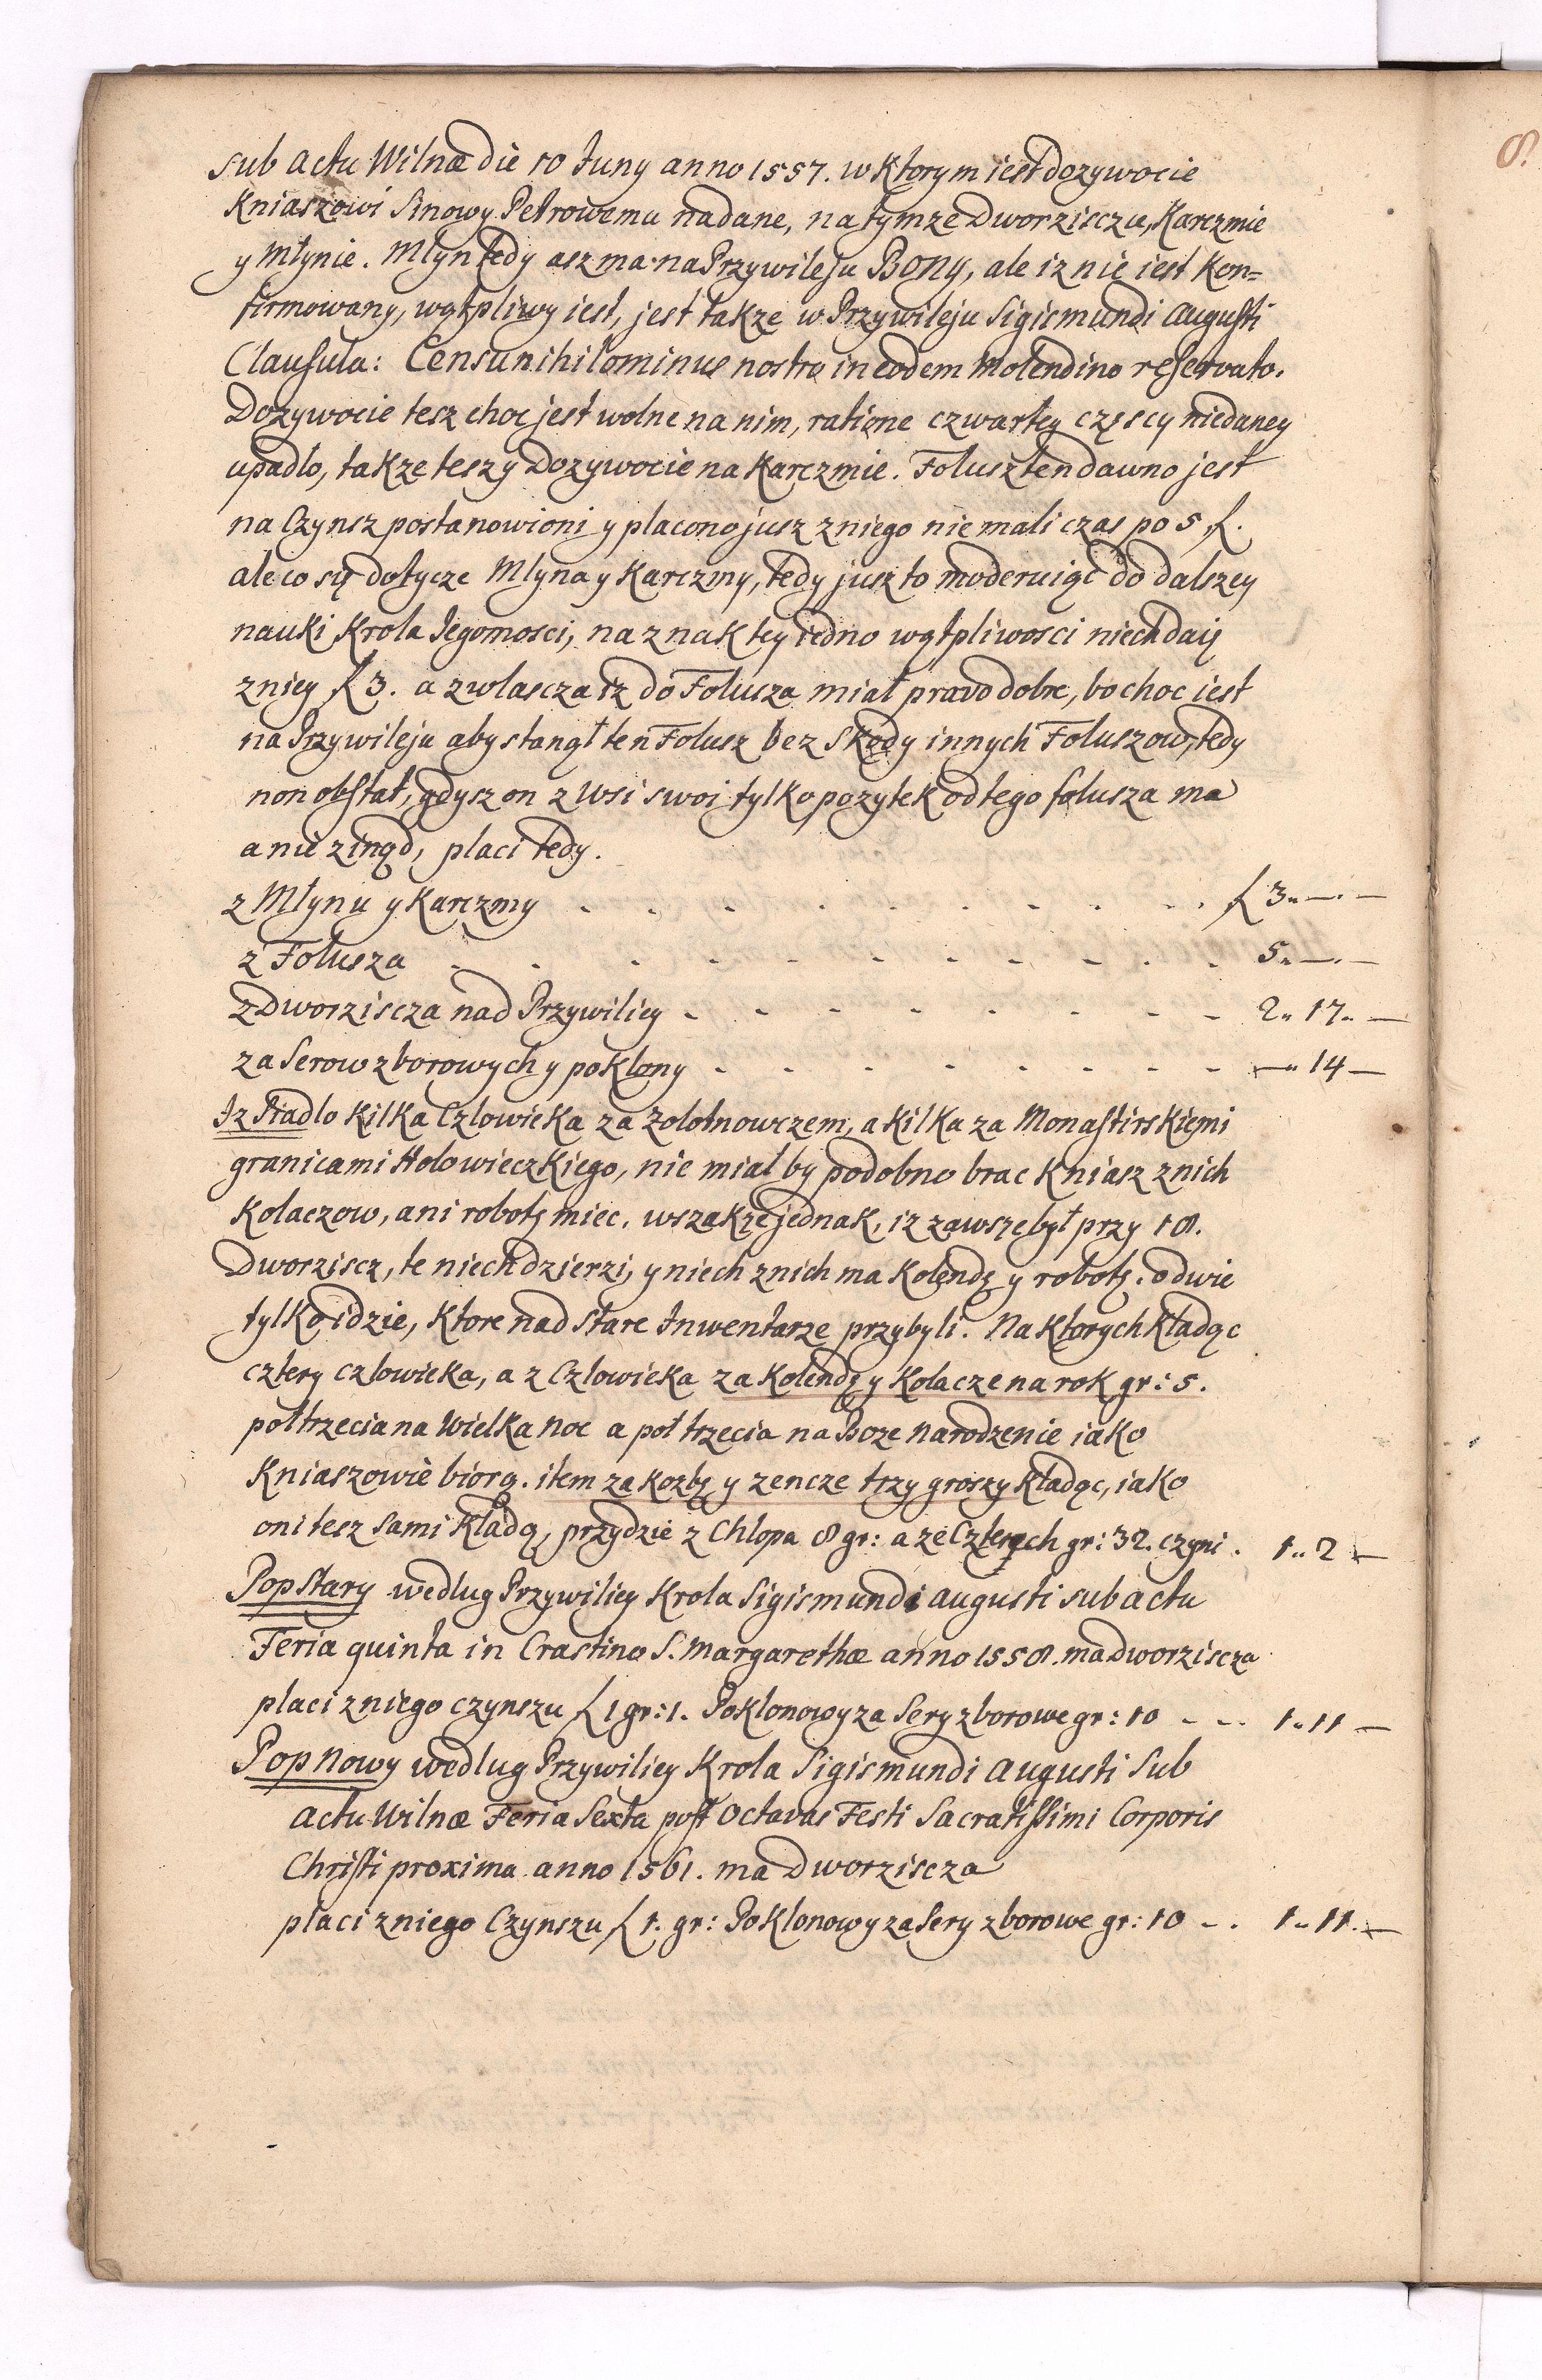 sub actu Wilnæ die 10 Juny anno 1557. w ktorym iest dozywocie
Kniaszowi Sinowy Petrowemu nadane, na tymze Dworzisczu, Karczmie
y Młynie. Młyn tedy asz ma na Przywileju Bony, ale iz nie iest Kon=
firmowany, wątpliwy iest, jest takze w Przywileju Sigismundi Augusti
Clausula: Censu nihilominus nostro in eodem Molendino reservato.
Dozywocie tesz choc jest wolne na nim, ratione czwartey częscy niedaney
upadlo, takze tesz y Dozywocie na Karczmie. Folusz ten dawno jest
na Czynsz postanowioni y placono jusz z niego nie mali czas po 5 f.
ale co się dotycze Mlyna y Karczmy, tedy jusz to moderuiąc do dalszey
nauki Krola Jegomosci, na znak tey iedno wątpliwosci niech daię
z niey f 3. a zwlascza iz do Folusza miał prawo dobre, bo choc iest
na Przywileju aby stanął ten Folusz bez skody innych Foluszow, tedy
non obstat, gdysz on z wsi swoi tylko pozytek od tego folusza ma
a nie z inąd, placi tedy.
z Młynu y Karczmy - - - - - - - - - f 3 „ — . —
z Folusza - - - - - - - - - - - 5 „ — . —
z Dworziscza nad Przywiliey - - - - - - - - 2 „ 17 „ —
za Serow zborowych y poklony - - - - - - - - — „ 14 —
Iz Siadlo kilka Czlowieka za Zolotnowczem, a kilka za Monastirskiemi
granicami Holowieczkiego, nie miał by podobno brac Kniasz z nich
Kolaczow, ani robotę miec. wszakze jednak, iz zawsze był przy 18.
Dworziscz, te niech dzierzi, y niech z nich ma Kolendę y robotę. o dwie
tylko idzie, Ktore nad Stare Inwentarze przybyli. Na Ktorych kladąc
cztery czlowieka, a z Czlowieka za Kolendę y Kolacze na rok gr: 5.
poltrzecia na Wielka noc a poł trzecia na Boze narodzenie iako
Kniaszowie biorą. item za Kozbę y zencze trzy groszy kladąc, iako
oni tesz Sami Kladą, przydzie z Chlopa 8 gr: a ze Czterech gr: 32. czyni . 1 „ 2 —
Pop Stary wedlug Przywiliey Krola Sigismundi Augusti sub actu
Feria quinta in Crastino S. Margarethæ anno 1558. ma dworziscza
placi z niego czynszu f 1 gr: 1. Poklonowy za Sery zborowe gr: 10 - - . 1 „ 11 —
Pop Nowy wedlug Przywiliey Krola Sigismundi Augusti Sub
actu Wilnæ Feria Sexta post Octavas Festi Sacratissimi Corporis
Christi proxima anno 1561. ma Dworziscza
placi z niego Czynszu f 1. gr: Poklonowy za Sery zborowe gr: 10 - . 1 „ 11. —
8.